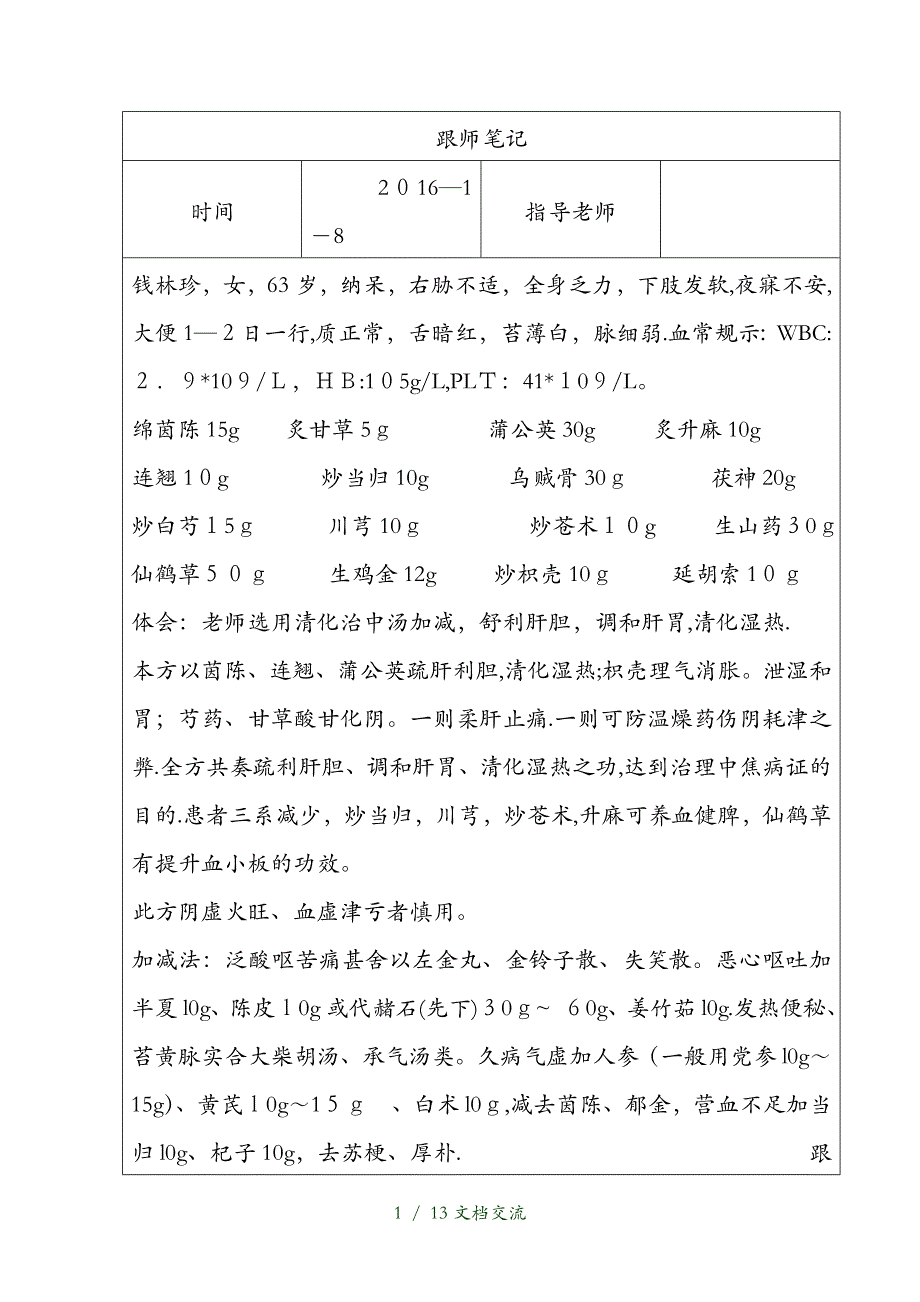 跟师笔记
时间
２０16—1
－8
指导老师
钱林珍，女，63 岁，纳呆，右胁不适，全身乏力，下肢发软,夜寐不安,
大便 1—２日一行,质正常，舌暗红，苔薄白，脉细弱.血常规示: WBC:
２．９*10９/Ｌ，ＨＢ:1０5g/L,PLＴ: 41*１０９/L。
绵茵陈 15g 炙甘草５ｇ 蒲公英 30g 炙升麻 10g
连翘１０ｇ 炒当归 10g 乌贼骨 30ｇ 茯神 20g
炒白芍１5ｇ 川芎 10ｇ 炒苍术１０ｇ 生山药３0ｇ
仙鹤草５０ｇ 生鸡金 12g 炒枳壳 10ｇ 延胡索１０ｇ
体会：老师选用清化治中汤加减，舒利肝胆，调和肝胃,清化湿热.
本方以茵陈、连翘、蒲公英疏肝利胆,清化湿热;枳壳理气消胀。泄湿和
胃；芍药、甘草酸甘化阴。一则柔肝止痛.一则可防温燥药伤阴耗津之
弊.全方共奏疏利肝胆、调和肝胃、清化湿热之功,达到治理中焦病证的
目的.患者三系减少，炒当归，川芎，炒苍术,升麻可养血健脾，仙鹤草
有提升血小板的功效。
此方阴虚火旺、血虚津亏者慎用。
加减法：泛酸呕苦痛甚舍以左金丸、金铃子散、失笑散。恶心呕吐加
半夏 l0g、陈皮ｌ０g 或代赭石(先下)３0ｇ～ ６0g、姜竹茹 l0g.发热便秘、
苔黄脉实合大柴胡汤、承气汤类。久病气虚加人参（一般用党参 l0g～
15g)、黄芪ｌ0g～1５ｇ 、白术 l0ｇ,减去茵陈、郁金，营血不足加当
归 l0g、杞子 10g，去苏梗、厚朴. 跟
1 / 13 文档交流